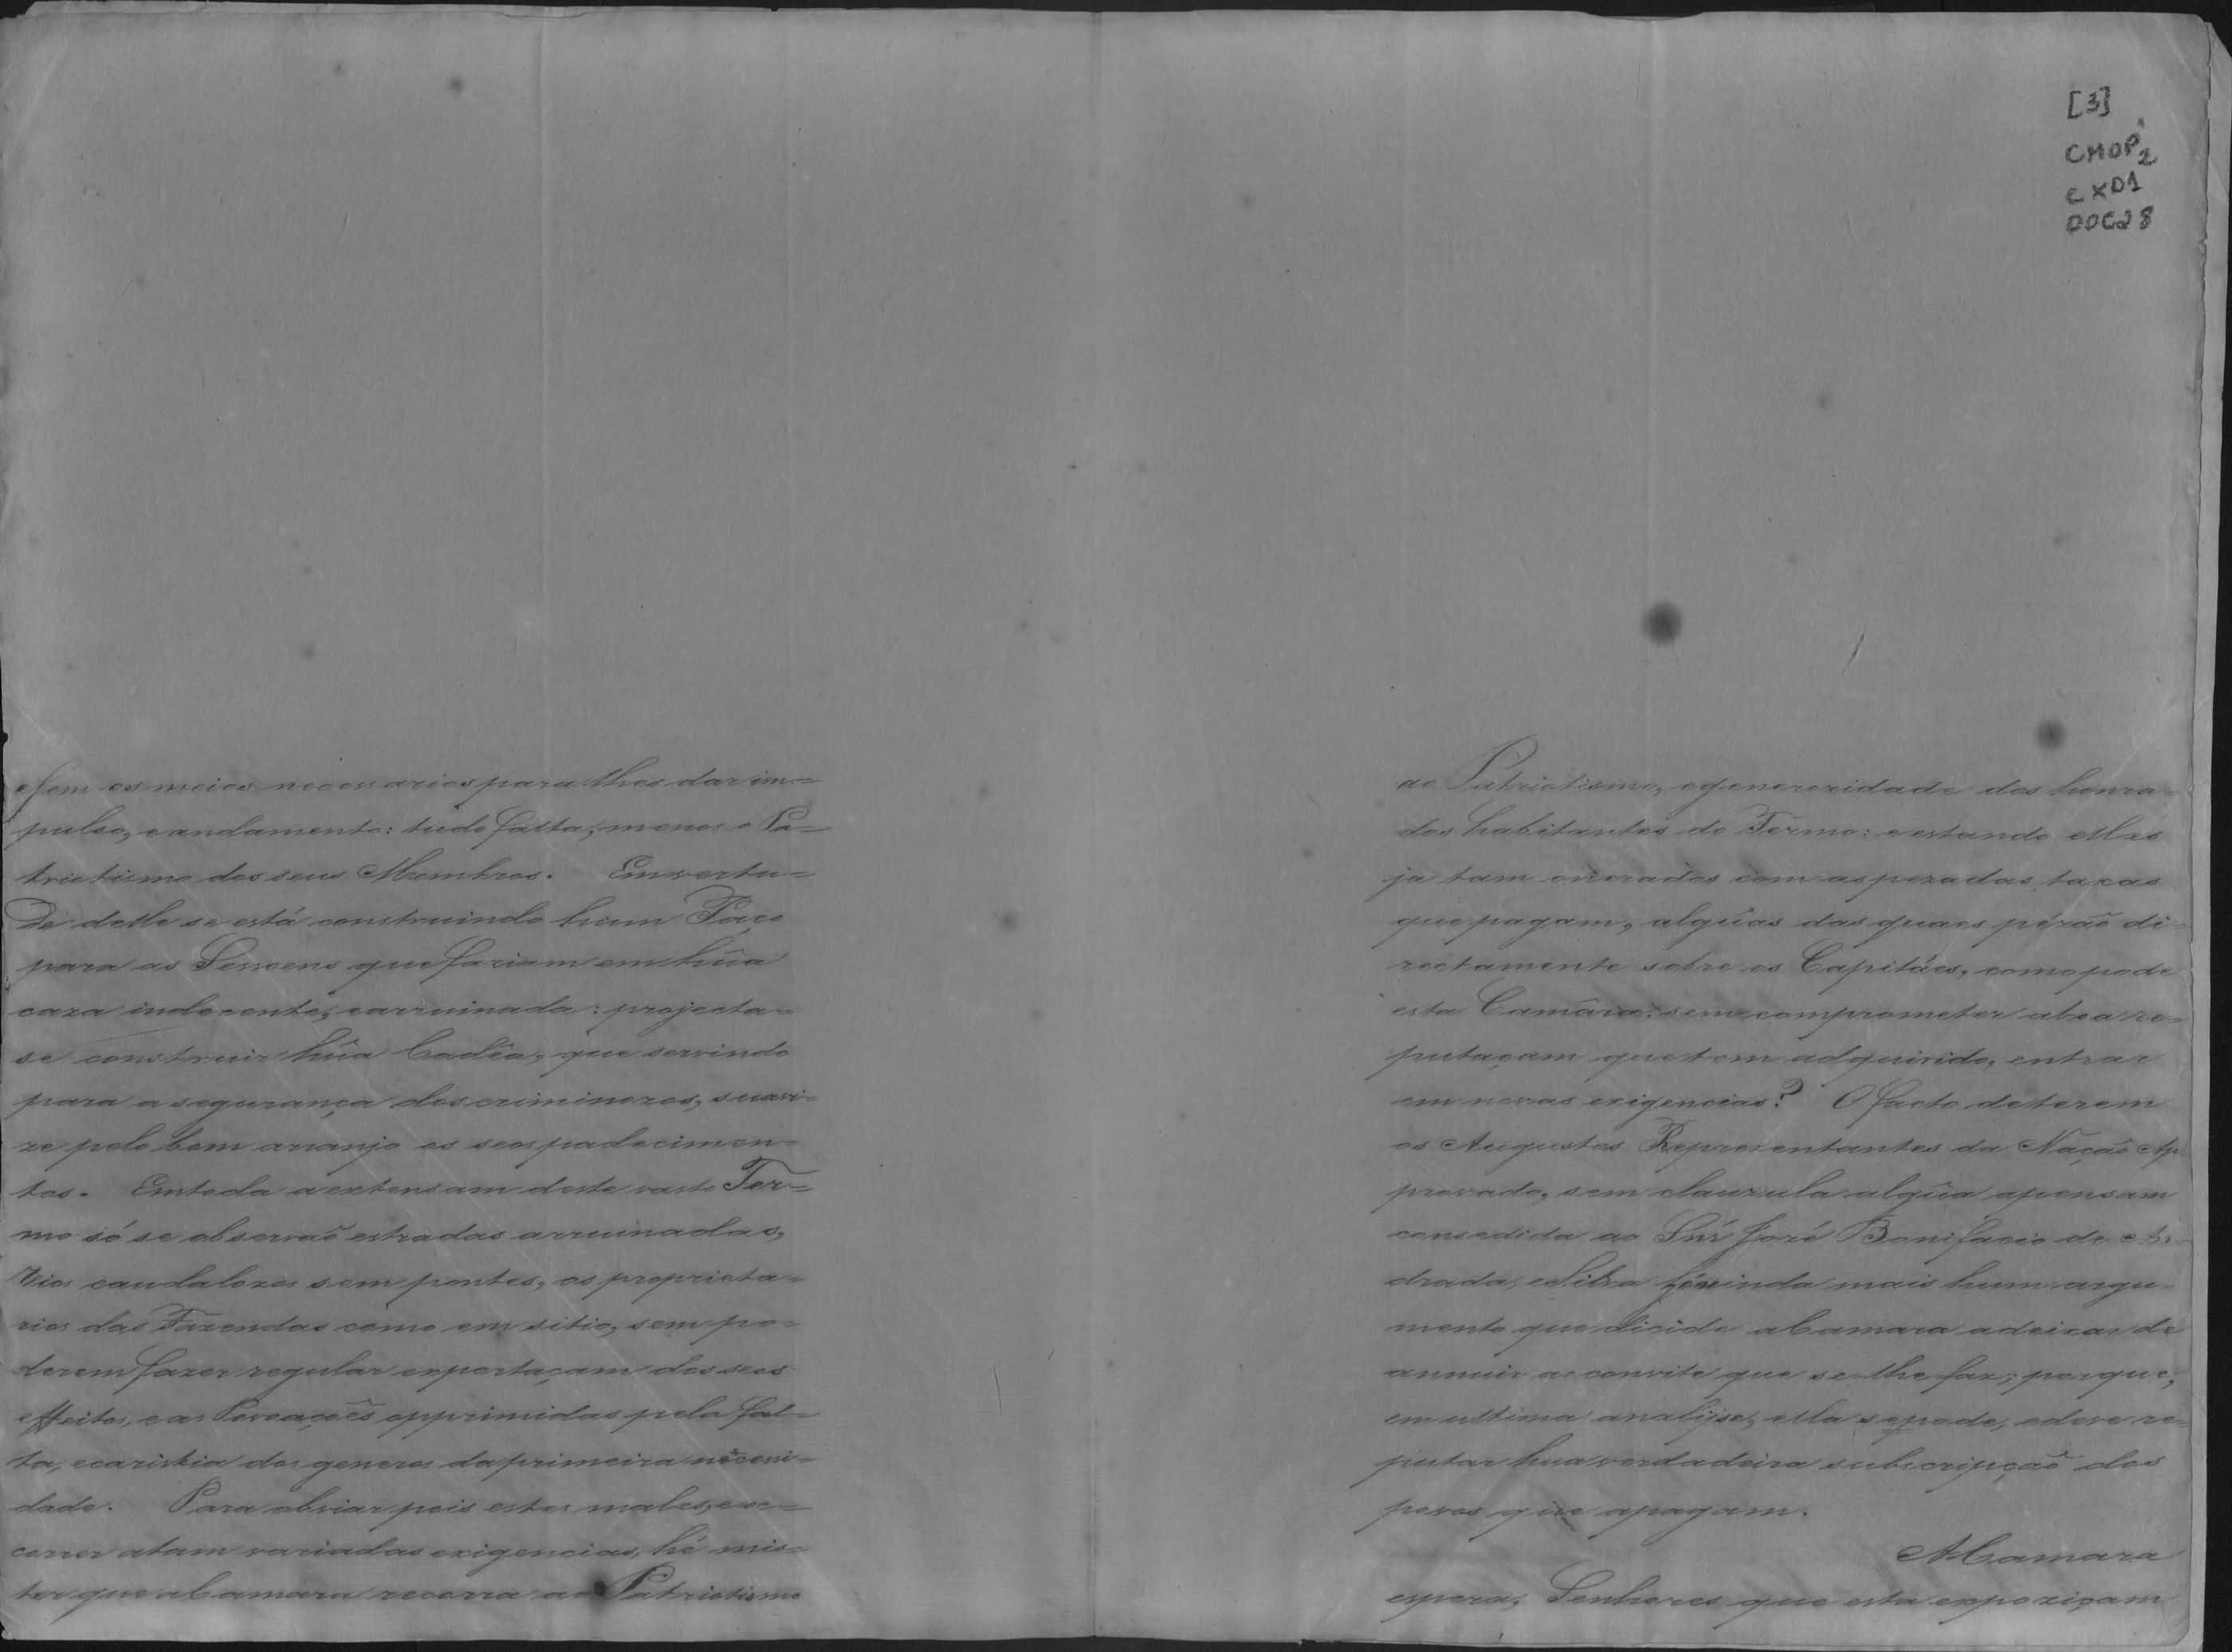 e sem os meios necessarios para lhes dar im=
pulso, e andamento: tudo falta, menos o Pa=
triotismo dos seus Membros. Em vertu=
de delle se está construindo hum Paço
para as Sessoens que faziam em hũa
caza indecente, e arruinada: projecta=
se construir hũa Cadêa, que servindo
para a segurança dos criminozos, suavi=
ze pelo bom arranjo os seos padecimen=
tos. Em toda a extensam deste vasto Ter=
mo só se observaõ estradas arruinadas,
Rios caudalozos sem pontes, os proprieta=
rios das Fazendas como em sitio, sem po=
derem fazer regular exportaçam dos seos
effeitos, e as Povoaçoẽs opprimidas pela fal=
ta, e caristia dos generos da primeira necessi=
dade. Para obviar pois estes males, e so=
correr a tam variadas exigencias, hé mis=
ter que a Camara recorra ao Patriotismo
[3]
CMOP2
CX01
DOC28
ao Patriotismo, e generozidade dos honra=
dos habitantes do Termo: e estando elles
ja tam onerados com as pezadas taxas
que pagam, algũas das quaes pézaõ di=
rectamente sobre os Capitáes, como pode
esta Camara, sem comprometer a boa re=
putaçam que tem adquirido, entrar
em novas exigencias? O facto de terem
os Augustos Reprezentantes da Naçaõ Ap=
provado, sem clauzula algũa a pensam
consedida ao Snr José Bonifacio de An=
drada, e Silva hé ainda mais hum argu=
mento que dicide a Camara a deixar de
annuir ao convite que se lhe faz; porque,
em ultima analyse, ella se pode, e deve re=
putar hua verdadeira subscripçaõ dos
povos que a pagam.
A Camara
espera, Senhores que esta expoziçam